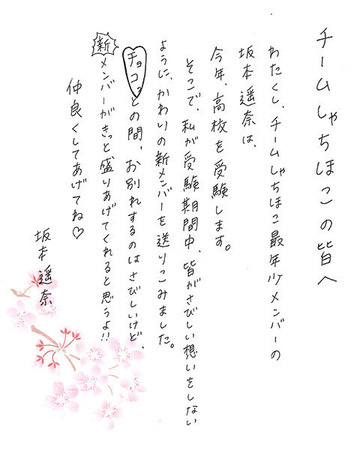 チームしゃちほこの皆へ
わたくし、チームしゃちほこ最年少メンバーの
坂本遥奈は、
今年、高校を受験します。
そこで、私が受験期間中、皆がさびしい想いをしない
ように、かわりの新メンバーを送りこみました。
チョコっとの間、お別れするのはさびしいけど、
新メンバーがきっと盛りあげてくれると思うよ!!
仲良くしてあげてね♡
坂本遥奈